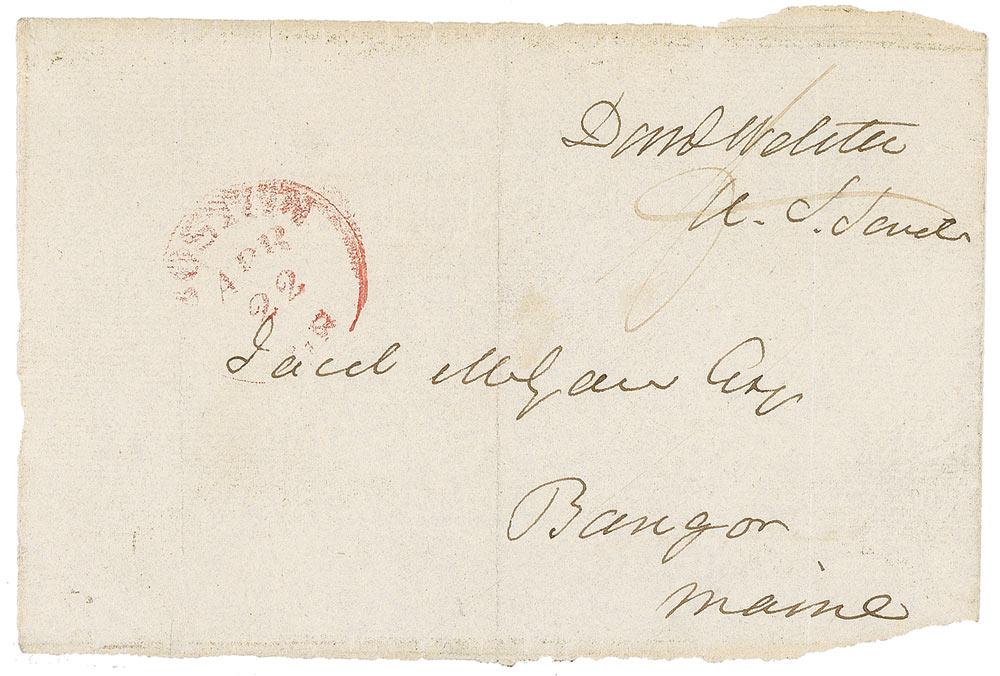 Danl Webster
U. S. Senate
BOSTON
APR
22
Jacob McGaw Esq
Bangor
Maine